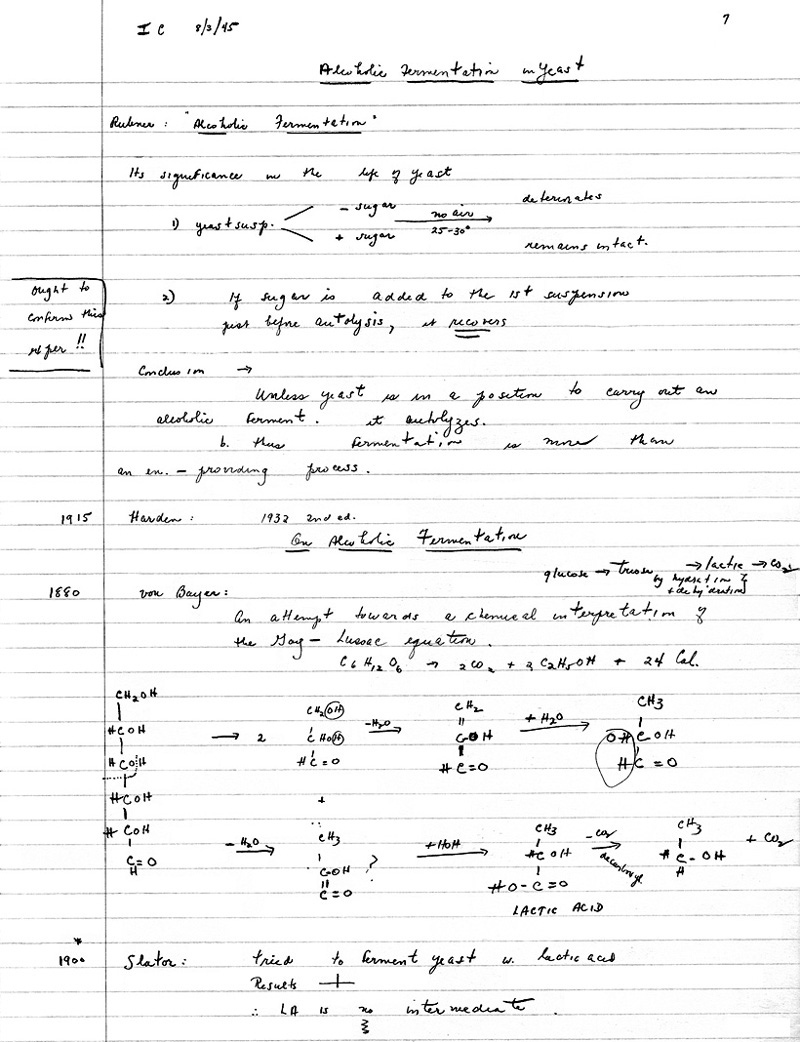 I C 8/3/45
7
Alcoholic Fermentation in Yeast
Rubner: "Alcoholic Fermentation"
Its significance in the life of yeast
1) yeast susp. - sugar no air deteriorates
+ sugar 25-30° remains intact.
ought to
confirm this
exper !!
2) If sugar is added to the 1st suspension
just before autolysis, it recovers
Conclusion →
Unless yeast is in a position to carry out an
alcoholic ferment. it autolyzes.
b. thus fermentation is more than
an en. - providing process.
1915 Harden: 1932 2nd ed.
On Alcoholic Fermentation
glucose → triose → lactic → CO2
by hydration &
+ dehydration
1880 von Bayer:
An attempt towards a chemical interpretation of
the Gay - Lussac equation.
C6H12O6 → 2CO2 + 2 C2H5OH + 24 Cal.
CH2OH
HCOH
HCOH
HCOH
HCOH
C=O
H
→ 2
CH2OH
CHOH
HC=O
-H2O
CH2
COH
HC=O
+ H2O
CH3
OHCOH
HC=O
+
- H2O
CH3
COH
C=O
?
+ HOH
CH3
HCOH
HO-C=O
LACTIC ACID
- CO2
decarboxyl.
CH3
HC-OH
H
+ CO2
1900 Slator: tried to ferment yeast w. lactic acid
Results
∴ LA is no intermediate.